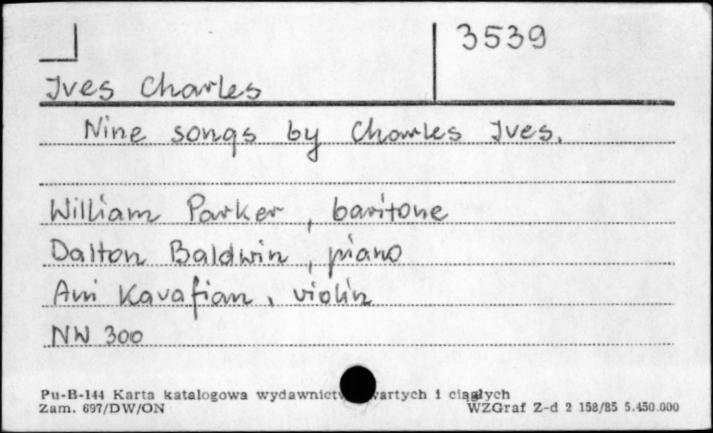 3539
Ives Charles
Nine songs by Charles Ives.
William Parker, baritone
Dalton Baldwin, piano
Ani Kavafian, violin
NW 300
Pu-B-144 Karta katalogowa wydawnict wartych i ciągłych
Zam. 697/DW/ON WZGraf Z-d 2 158/85 5.450.000